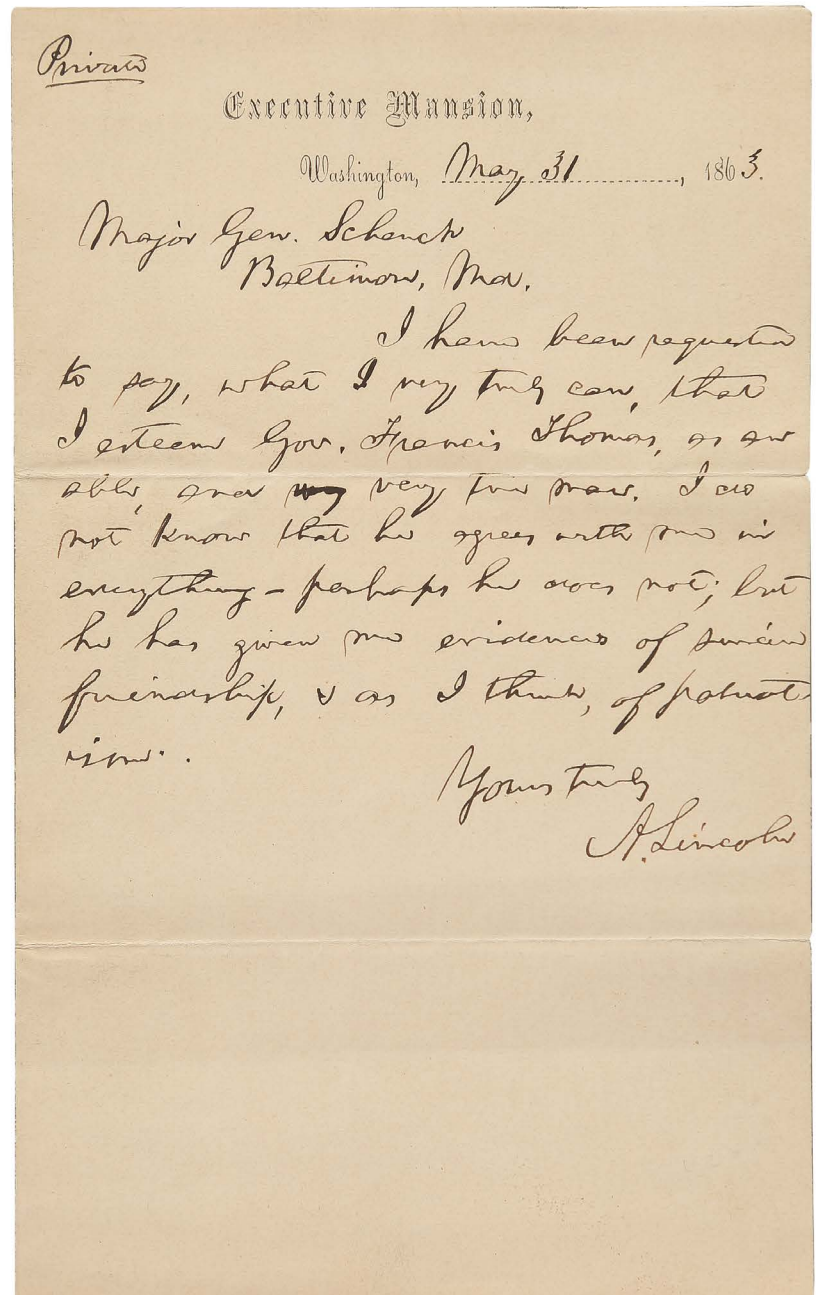 Private
Executive Mansion,
Washington, May 31, 1863.
Major Gen. Schenck
Baltimore, Md.
I have been requested
to say, what I very truly can, that
I esteem Gov. Francis Thomas, as an
able, and very true man. I do
not know that he agrees with me in
everything – perhaps he does not; but
he has given me evidences of sincere
friendship, & as I think, of patriot-
ism.
Yours truly
A. Lincoln